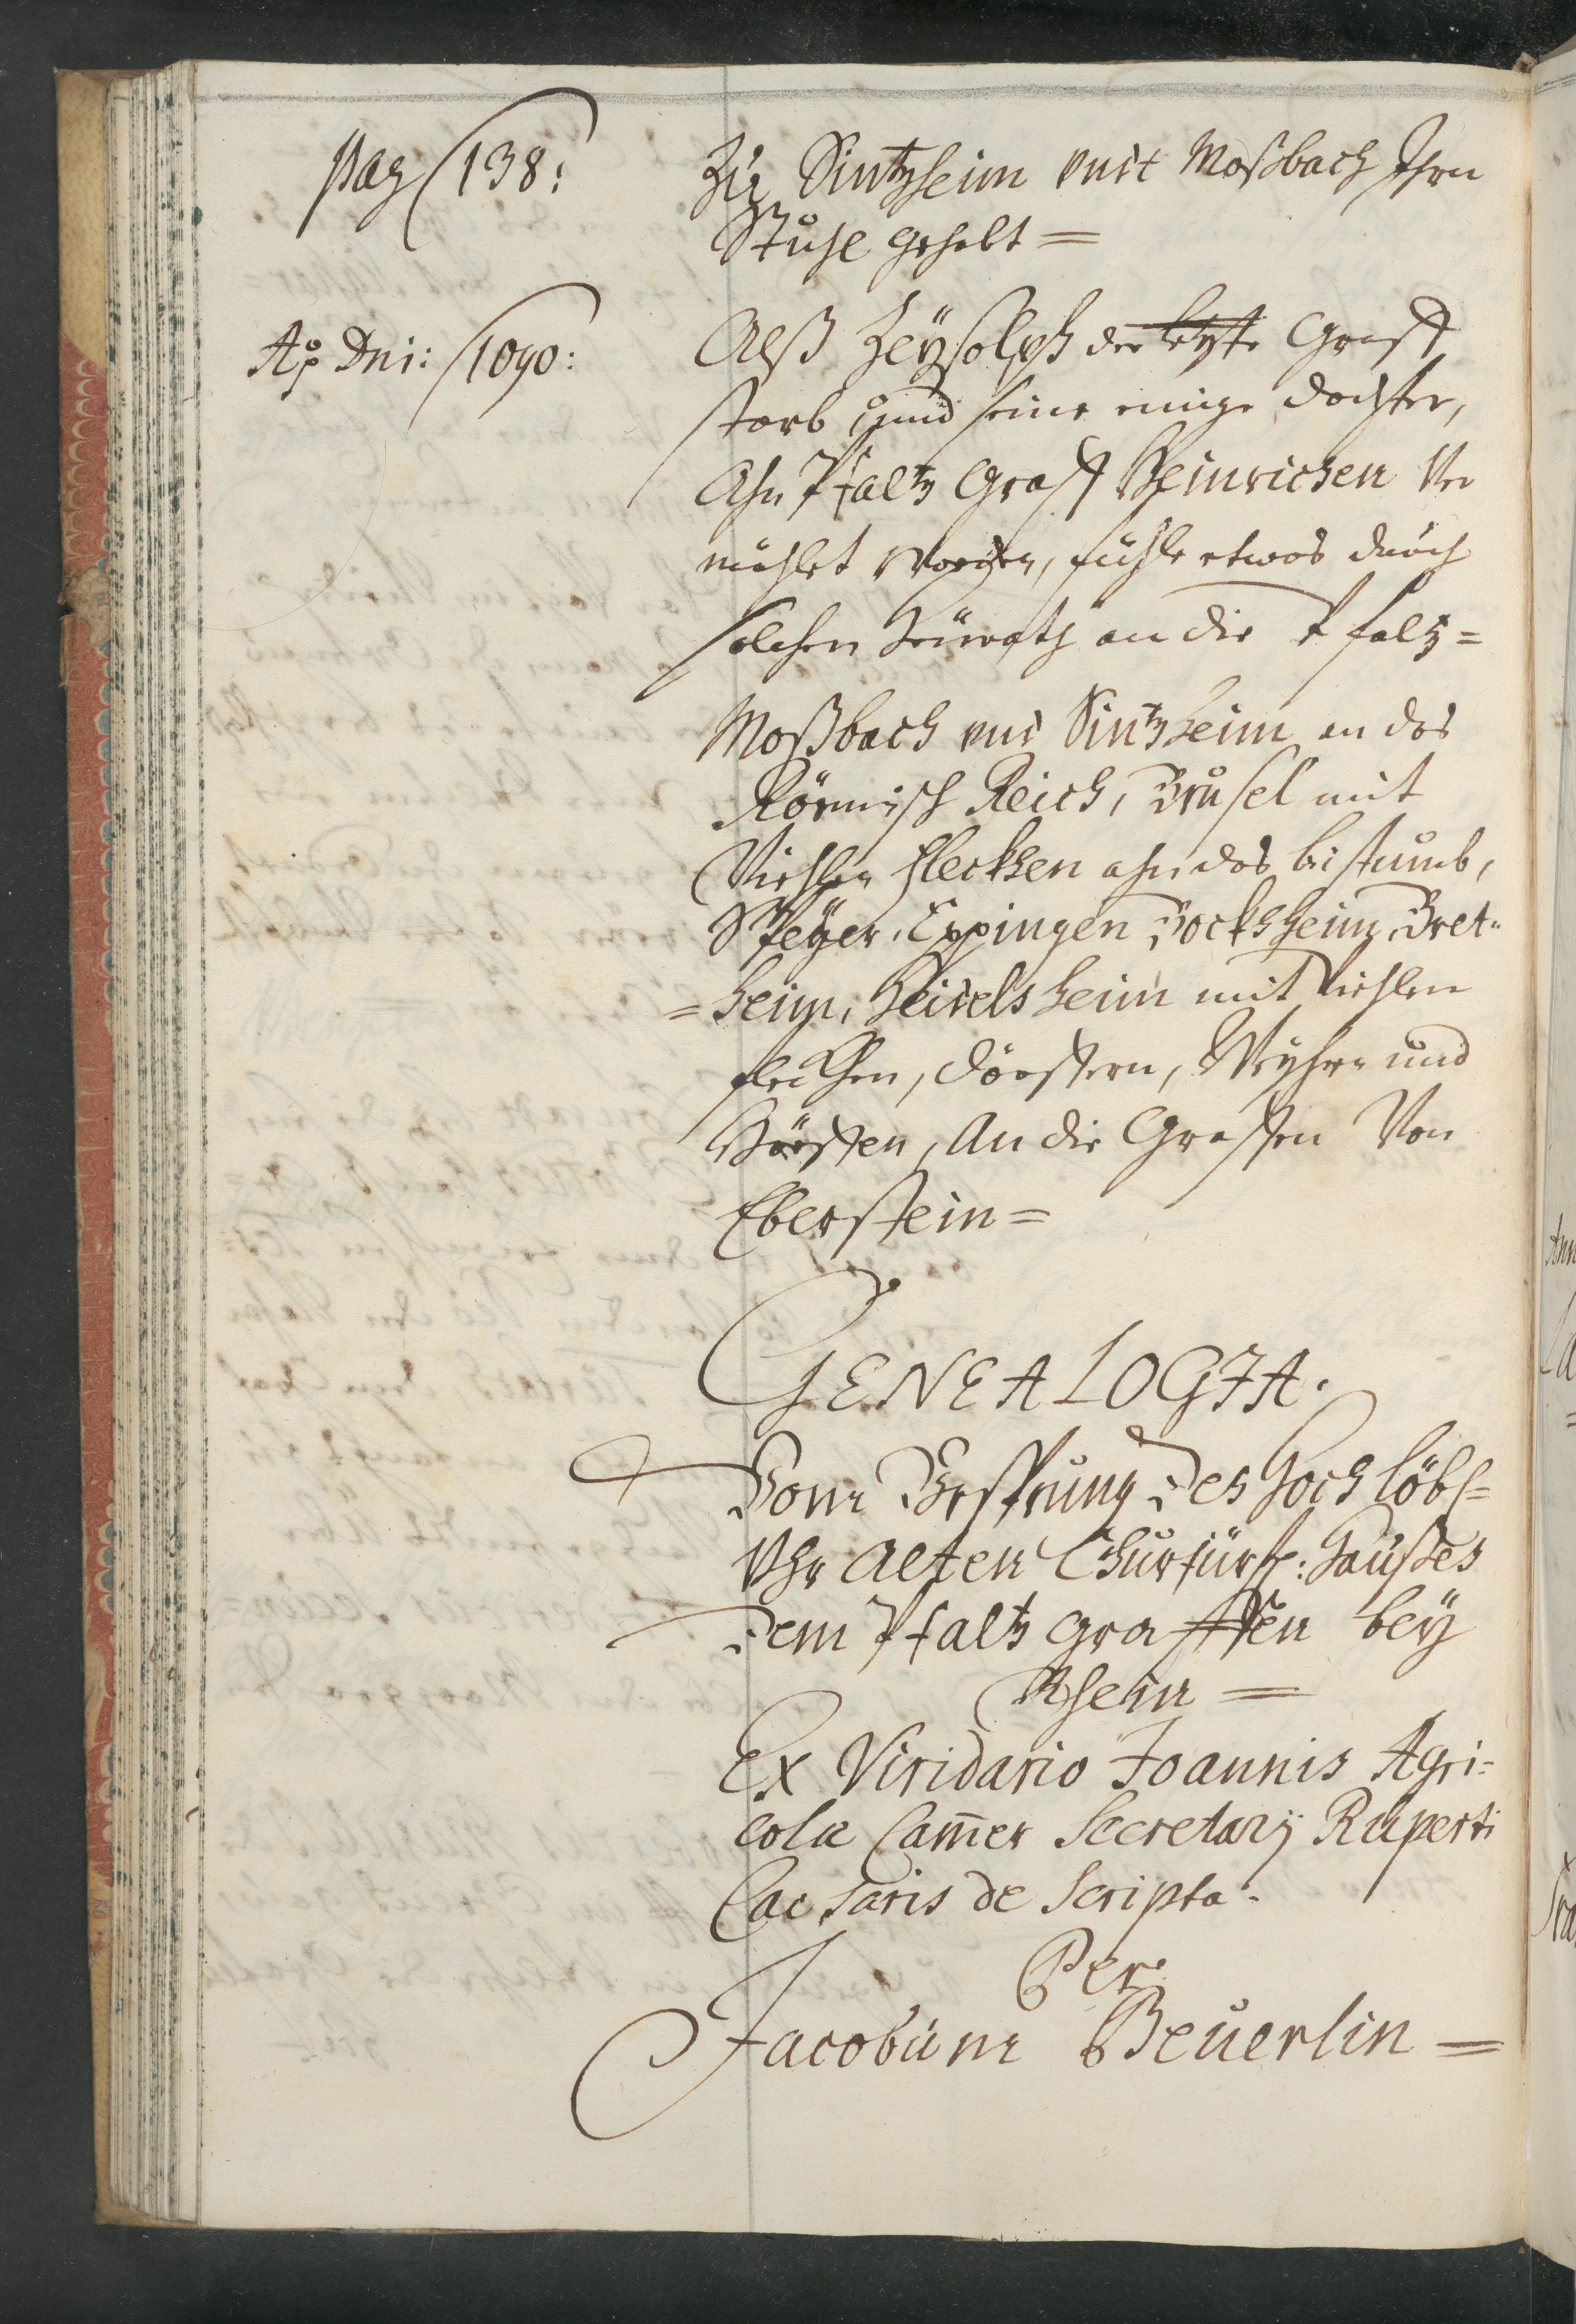 pag 138:
Zu Sintzheim undt Moßbach Ihrn
Stuhl gehabt =
Aõ Dni: 1090:
Alß Zeysolph der letzte Graff
starb und seine einige dochter,
Ahn Pfaltz Graff Heinrichen Ver
mählet worden, fühle etwas durch
solchen Heürath an die Pfaltz =
Moßbach und Sintzheim an das
Römisch Reich, Brusel mit
Viehlen fleckhen ahn das bistumb,
Speÿer, Eppingen Bockhsheim, Bret=
=heim, Heidelsheim mit Viehlen
fleckhen, dörffern, Weyhrn und
Höffen, An die Graffen Von
Eberstein =
GENEALOGIA.
Vom Vrsprung des Hochlöbl=
Vhr alten Churfürstl: Haußes
dem Pfaltz graffen beÿ
Rhein =
Ex Viridario Joannis Agri=
colæ Cam̄er Secretarÿ Ruperti
Caesaris de Scripta.
Per
Jacobum Beuerlin =